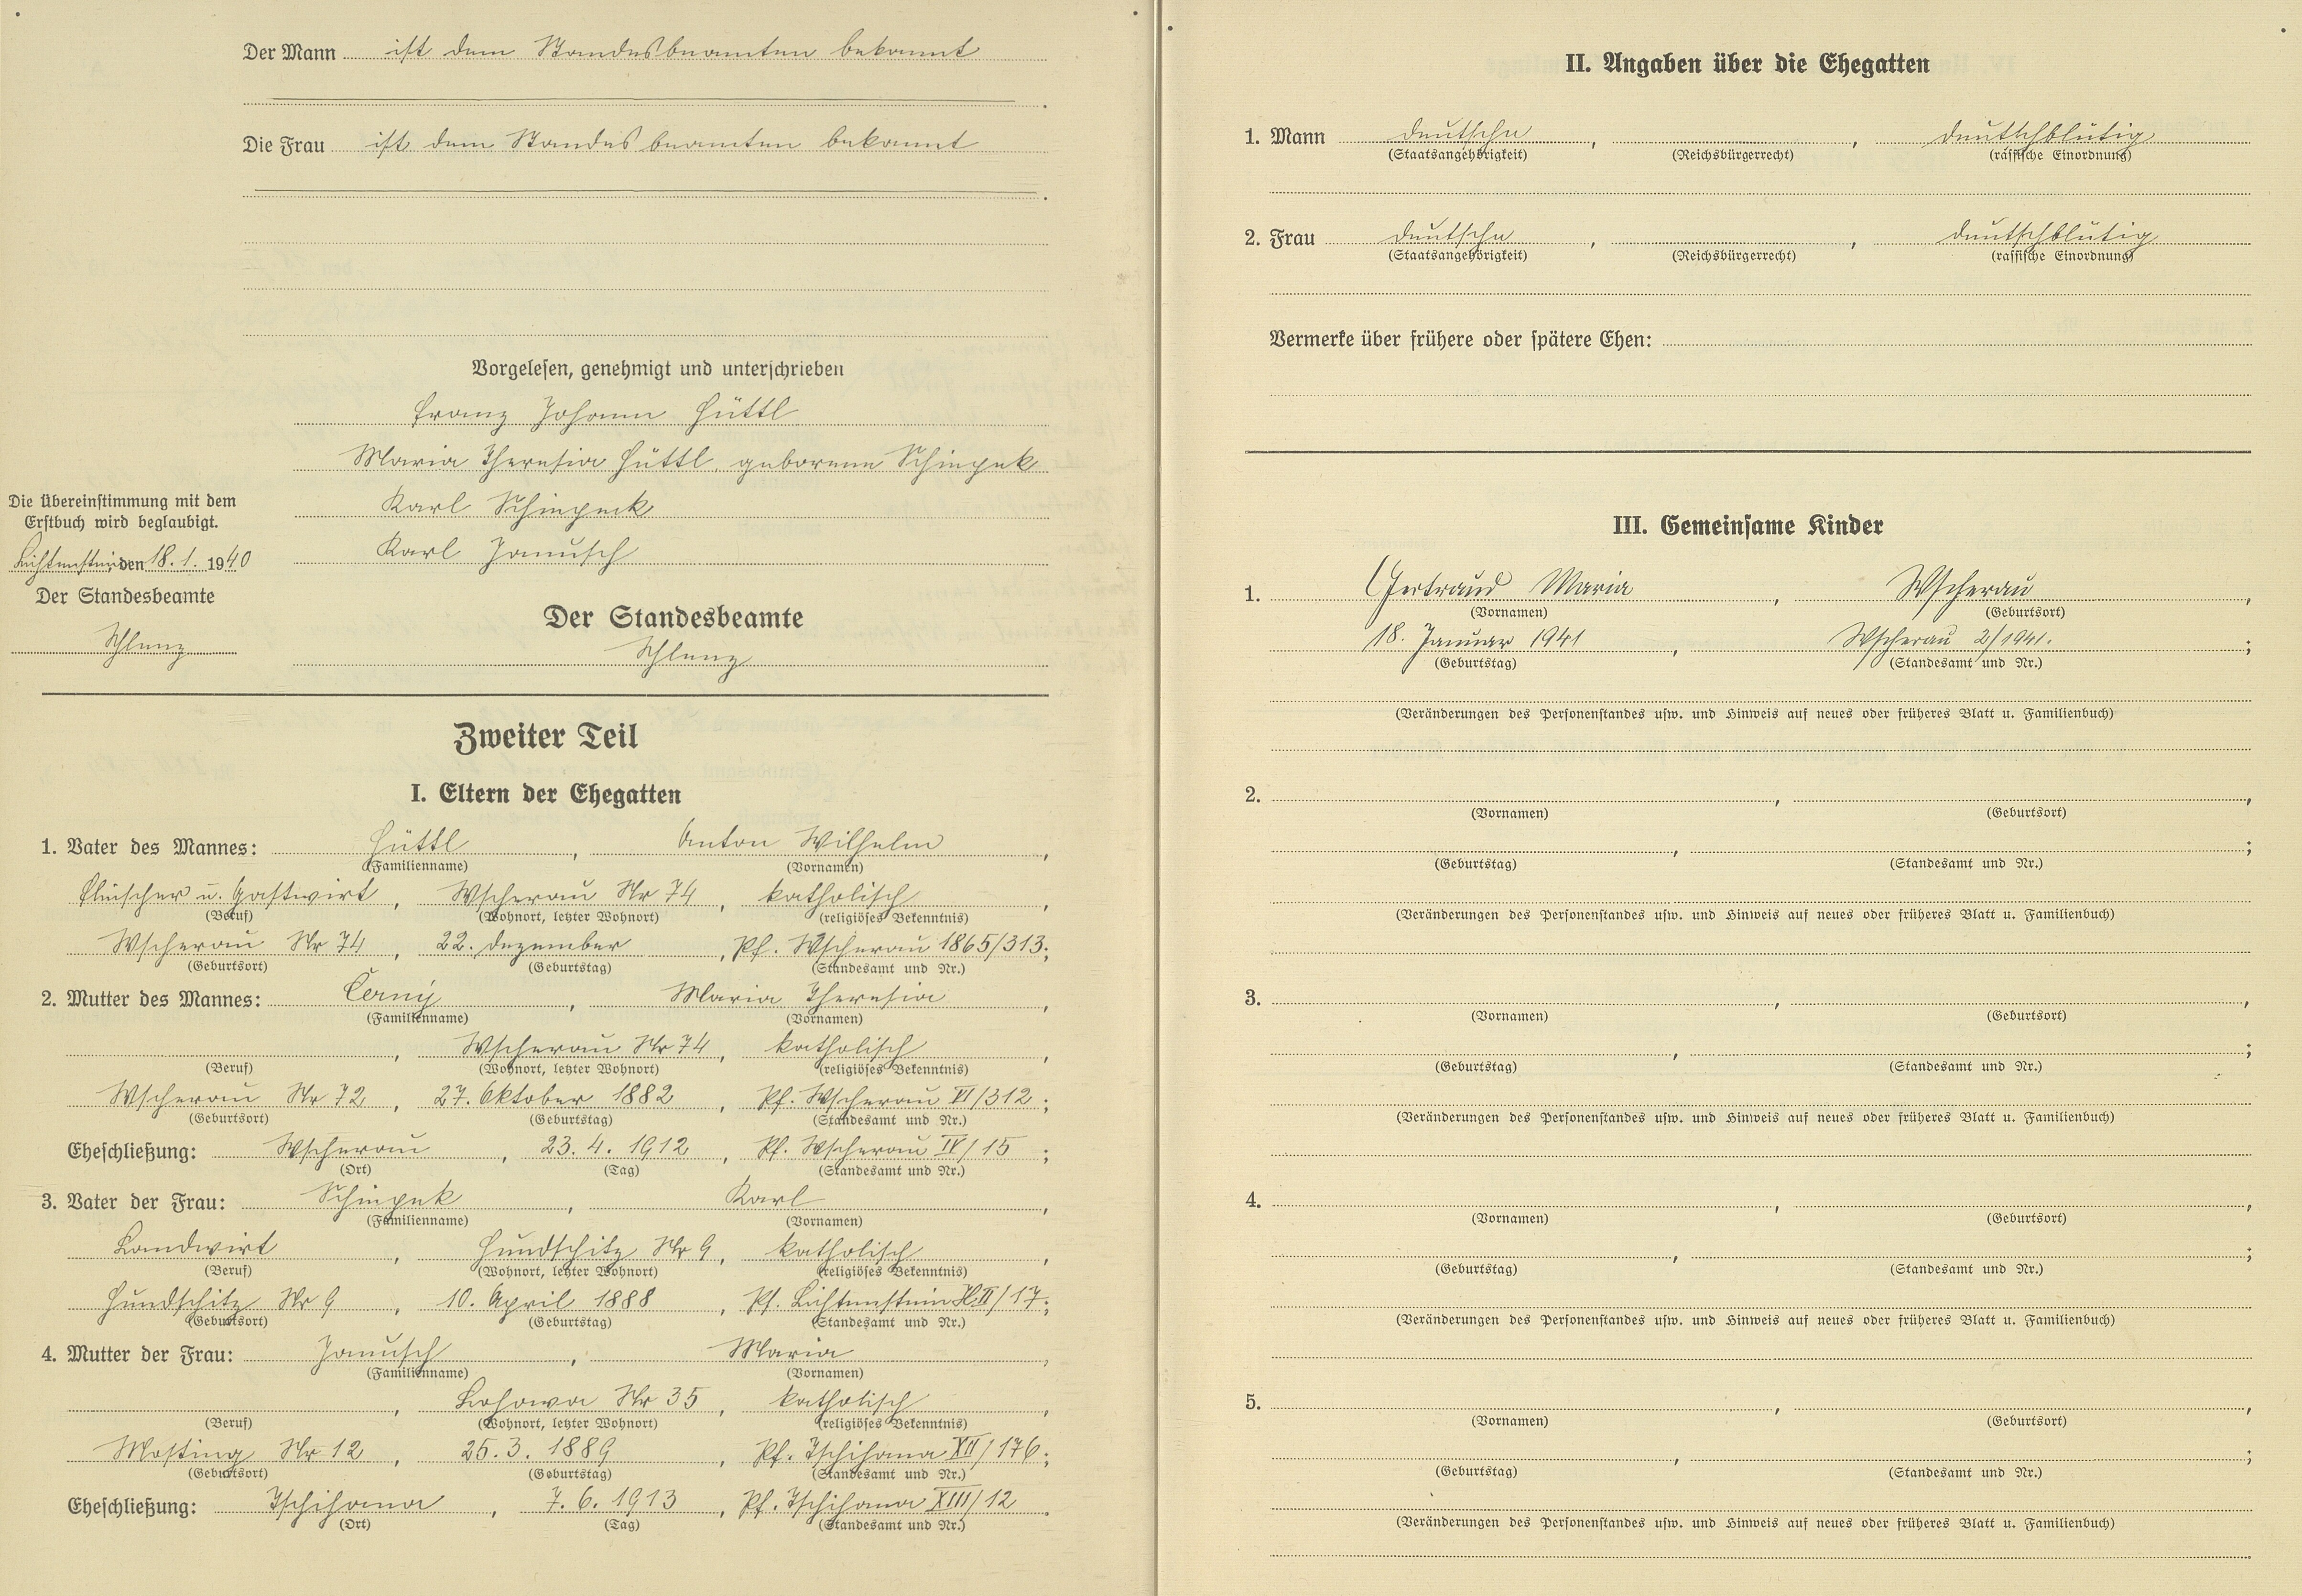 Der Mann ist dem Standesbeamten bekannt
.
Die Frau ist dem Standesbeamten bekannt
.
Vorgelesen, genehmigt und unterschrieben
Franz Johann Hüttl
Maria Theresia Hüttl, geborene Schinpek
Karl Schinpek
Karl Janusch
Die Übereinstimmung mit dem
Erstbuch wird beglaubigt.
Lichtenstein, den 18. 1. 1940
Der Standesbeamte
Schlenz
Der Standesbeamte
Schlenz
Zweiter Teil
I. Eltern der Ehegatten
1. Vater des Mannes: Hüttl, Anton Wilhelm,
(Familienname) (Vornamen)
Fleischer u. Gastwirt, Wscherau Nr 74, katholisch,
(Beruf) (Wohnort, letzter Wohnort) (religiöses Bekenntnis)
Wscherau Nr 74, 22. Dezember, Pf. Wscherau 1865/313;
(Geburtsort) (Geburtstag) (Standesamt und Nr.)
2. Mutter des Mannes: Černý, Maria Theresia,
(Familienname) (Vornamen)
, Wscherau Nr 74, katholisch,
(Beruf) (Wohnort, letzter Wohnort) (religiöses Bekenntnis)
Wscherau Nr 72, 27. Oktober 1882, Pf. Wscherau VI/312;
(Geburtsort) (Geburtstag) (Standesamt und Nr.)
Eheschließung: Wscherau, 23. 4. 1912, Pf. Wscherau IV/15;
(Ort) (Tag) (Standesamt und Nr.)
3. Vater der Frau: Schinpek, Karl,
(Familienname) (Vornamen)
Landwirt, Hundschitz Nr 9, katholisch,
(Beruf) (Wohnort, letzter Wohnort) (religiöses Bekenntnis)
Hundschitz Nr 9, 10. April 1888, Pf. Lichtenstein H.II/17;
(Geburtsort) (Geburtstag) (Standesamt und Nr.)
4. Mutter der Frau: Janusch, Maria,
(Familienname) (Vornamen)
, Lohowa Nr 35, katholisch,
(Beruf) (Wohnort, letzter Wohnort) (religiöses Bekenntnis)
Mosting Nr 12, 25. 3. 1889, Pf. Tschihana XII/176;
(Geburtsort) (Geburtstag) (Standesamt und Nr.)
Eheschließung: Tschihana, 7. 6. 1913, Pf. Tschihana XIII/12.
(Ort) (Tag) (Standesamt und Nr.)
II. Angaben über die Ehegatten
1. Mann deutsche, , deutschblütig
(Staatsangehörigkeit) (Reichsbürgerrecht) (rassische Einordnung)
2. Frau deutsche, , deutschblütig
(Staatsangehörigkeit) (Reichsbürgerrecht) (rassische Einordnung)
Vermerke über frühere oder spätere Ehen:
III. Gemeinsame Kinder
1. Gertraud Maria, Wscherau,
(Vornamen) (Geburtsort)
18. Januar 1941, Wscherau 2/1941.;
(Geburtstag) (Standesamt und Nr.)
(Veränderungen des Personenstandes usw. und Hinweis auf neues oder früheres Blatt u. Familienbuch)
2. , ,
(Vornamen) (Geburtsort)
, ;
(Geburtstag) (Standesamt und Nr.)
(Veränderungen des Personenstandes usw. und Hinweis auf neues oder früheres Blatt u. Familienbuch)
3. , ,
(Vornamen) (Geburtsort)
, ;
(Geburtstag) (Standesamt und Nr.)
(Veränderungen des Personenstandes usw. und Hinweis auf neues oder früheres Blatt u. Familienbuch)
4. , ,
(Vornamen) (Geburtsort)
, ;
(Geburtstag) (Standesamt und Nr.)
(Veränderungen des Personenstandes usw. und Hinweis auf neues oder früheres Blatt u. Familienbuch)
5. , ,
(Vornamen) (Geburtsort)
, ;
(Geburtstag) (Standesamt und Nr.)
(Veränderungen des Personenstandes usw. und Hinweis auf neues oder früheres Blatt u. Familienbuch)